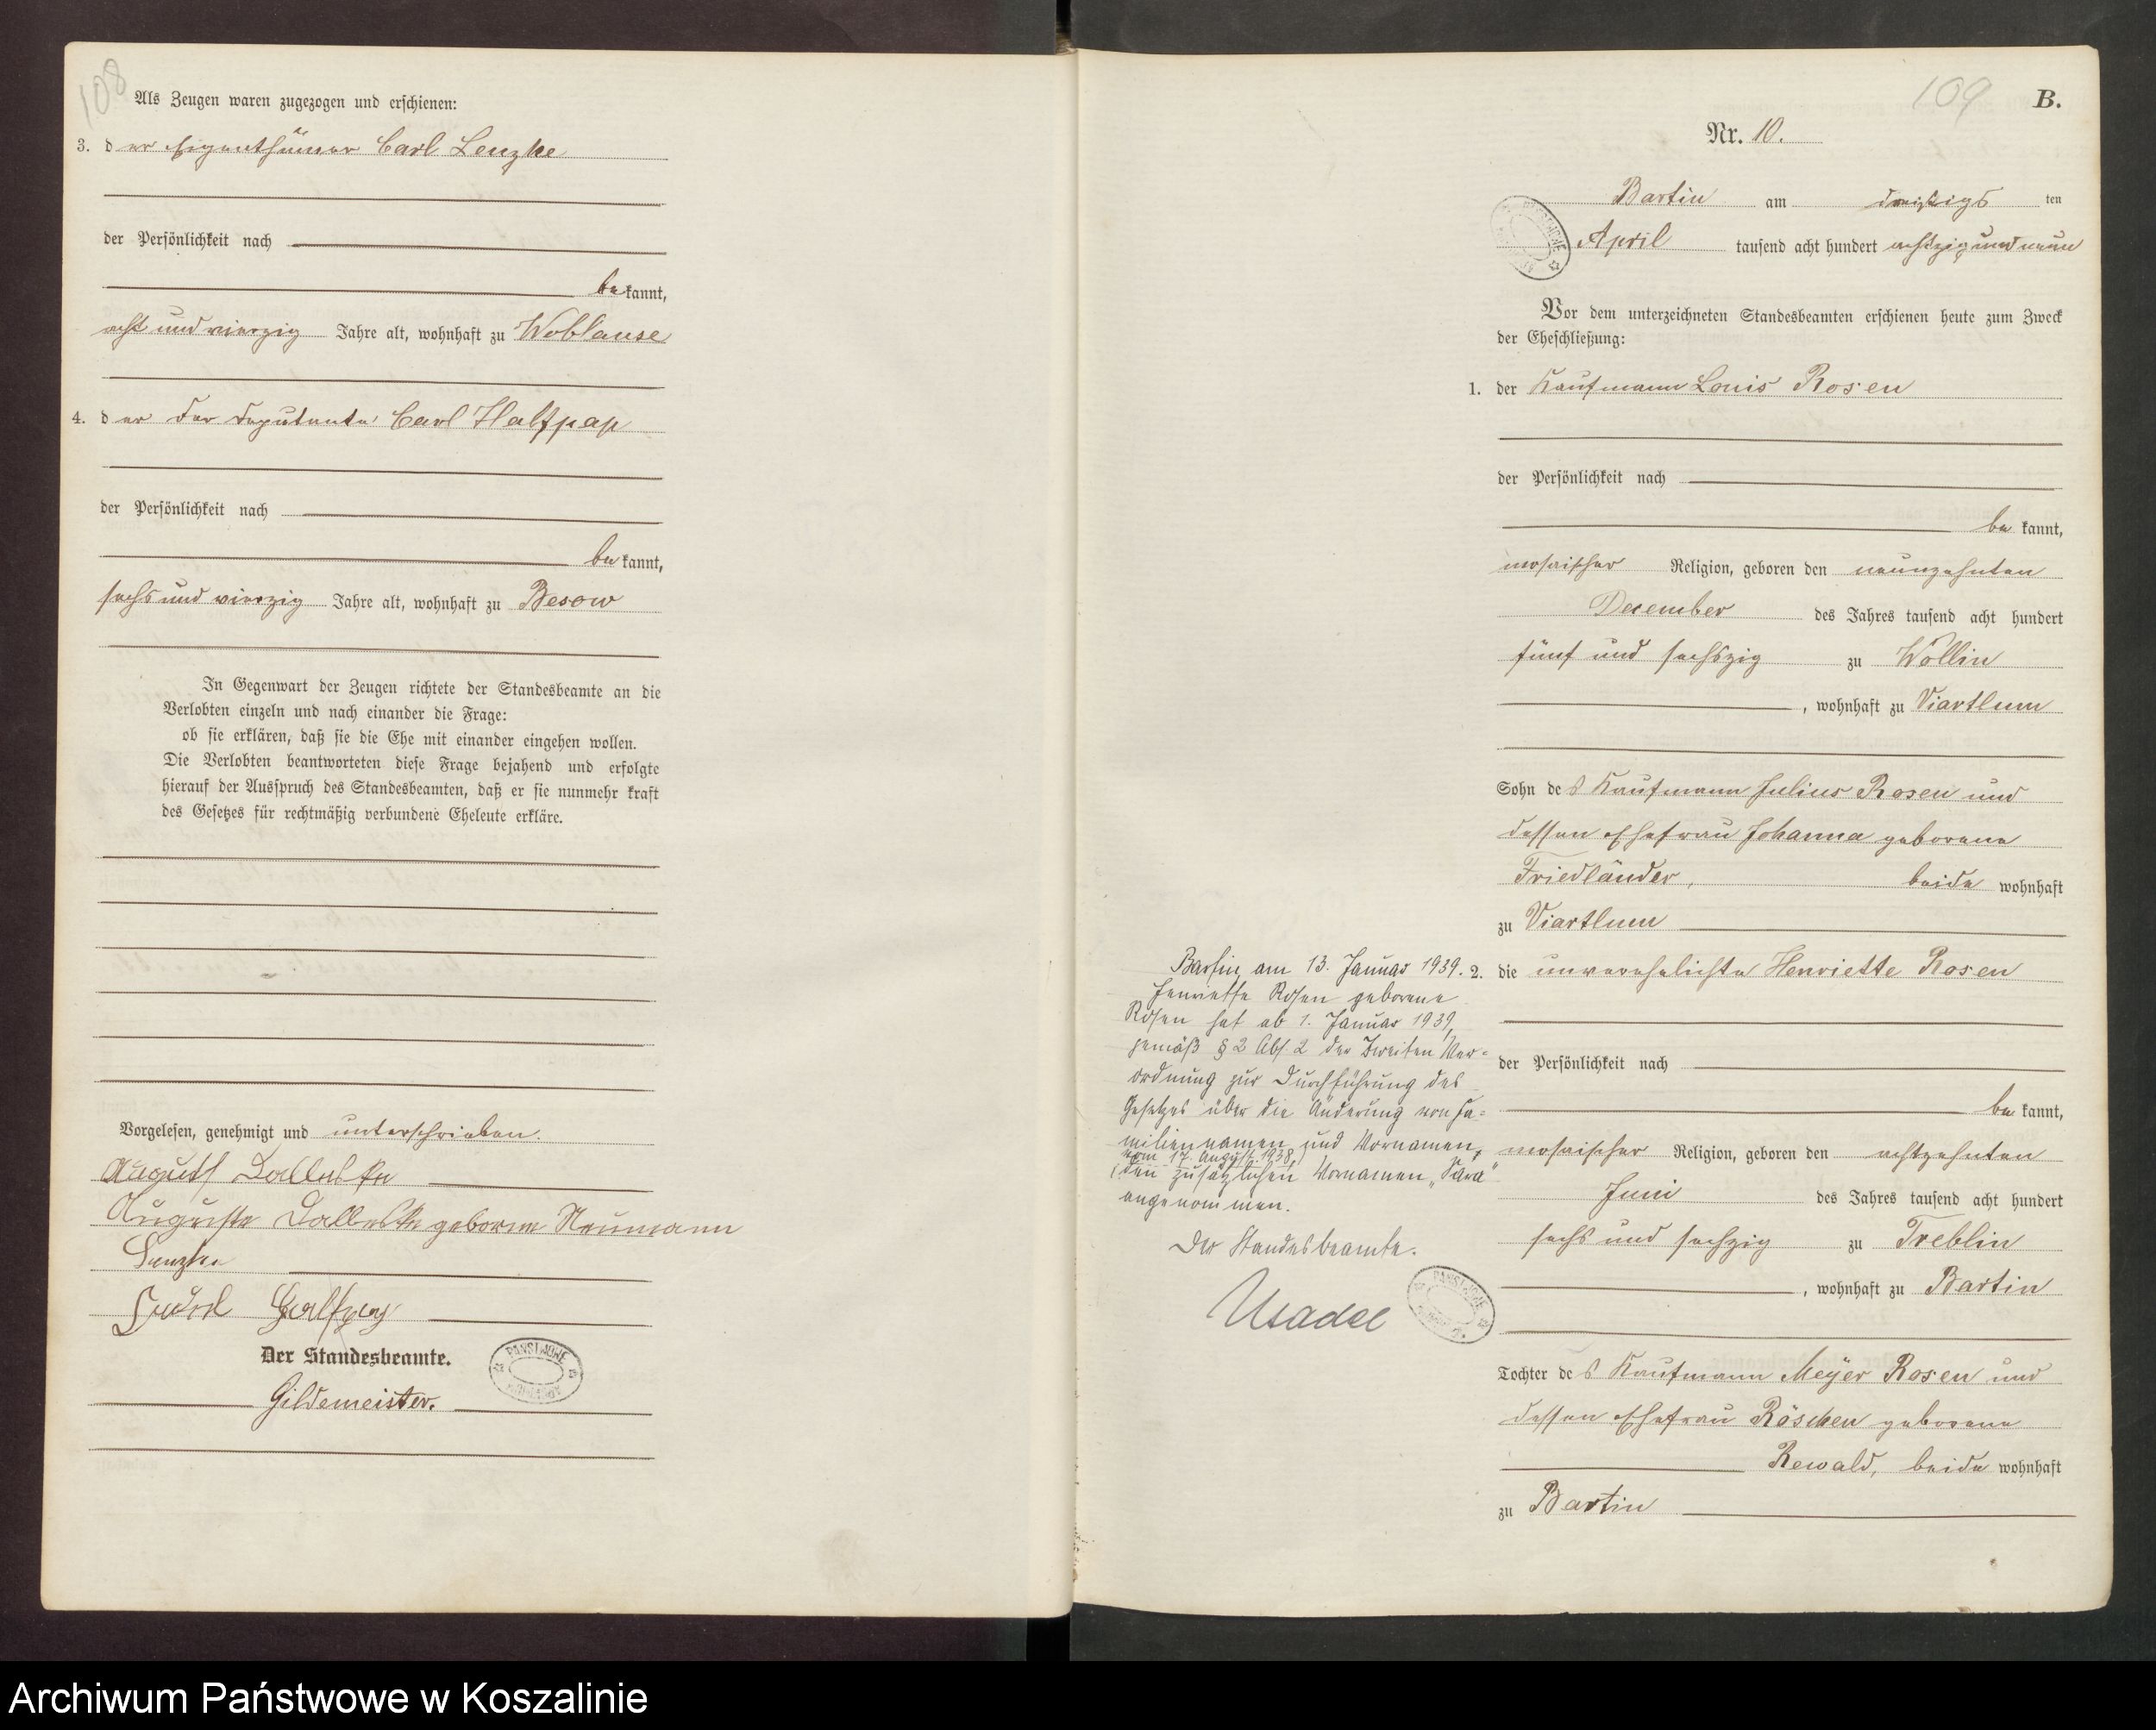 108
Als Zeugen waren zugezogen und erschienen:
3. der Eigenthümer Carl Lenzke
der Persönlichkeit nach
bekannt,
acht und vierzig Jahre alt, wohnhaft zu Woblanse
4. der der Deputant Carl Halfpap
der Persönlichkeit nach
bekannt,
sechs und vierzig Jahre alt, wohnhaft zu Besow
In Gegenwart der Zeugen richtete der Standesbeamte an die
Verlobten einzeln und nach einander die Frage:
ob sie erklären, daß sie die Ehe mit einander eingehen wollen.
Die Verlobten beantworteten diese Frage bejahend und erfolgte
hierauf der Ausspruch des Standesbeamten, daß er sie nunmehr kraft
des Gesetzes für rechtmäßig verbundene Eheleute erkläre.
Vorgelesen, genehmigt und unterschrieben.
August Dalleske
Auguste Dalleske geborene Neumann
Lenzke
Halfpap
Der Standesbeamte.
Gildemeister.
109
B.
Nr. 10.
Bartin am dreißigsten
April tausend acht hundert achtzig und neun
Vor dem unterzeichneten Standesbeamten erschienen heute zum Zweck
der Eheschließung:
1. der Kaufmann Louis Rosen
der Persönlichkeit nach
bekannt,
mosaischer Religion, geboren den neunzehnten
December des Jahres tausend acht hundert
fünf und sechszig zu Wollin
, wohnhaft zu Viartlum
Sohn des Kaufmann Julius Rosen und
dessen Ehefrau Johanna geborene
Friedländer, beide wohnhaft
zu Viartlum
2. die unverehelichte Henriette Rosen
der Persönlichkeit nach
bekannt,
mosaischer Religion, geboren den achtzehnten
Juni des Jahres tausend acht hundert
sechs und sechzig zu Treblin
, wohnhaft zu Bartin
Tochter des Kaufmann Meyer Rosen und
dessen Ehefrau Röschen geborene
Rewald, beide wohnhaft
zu Bartin
Bartin, am 13. Januar 1939.
Henriette Rosen geborene
Rosen hat ab 1. Januar 1939,
gemäß § 2 Abs. 2 der Zweiten Ver=
ordnung zur Durchführung des
Gesetzes über die Änderung von Fa=
miliennamen und Vornamen,
vom 17. August 1938,
den zusätzlichen Vornamen „Sara"
angenommen.
Der Standesbeamte.
Usadel
Archiwum Państwowe w Koszalinie